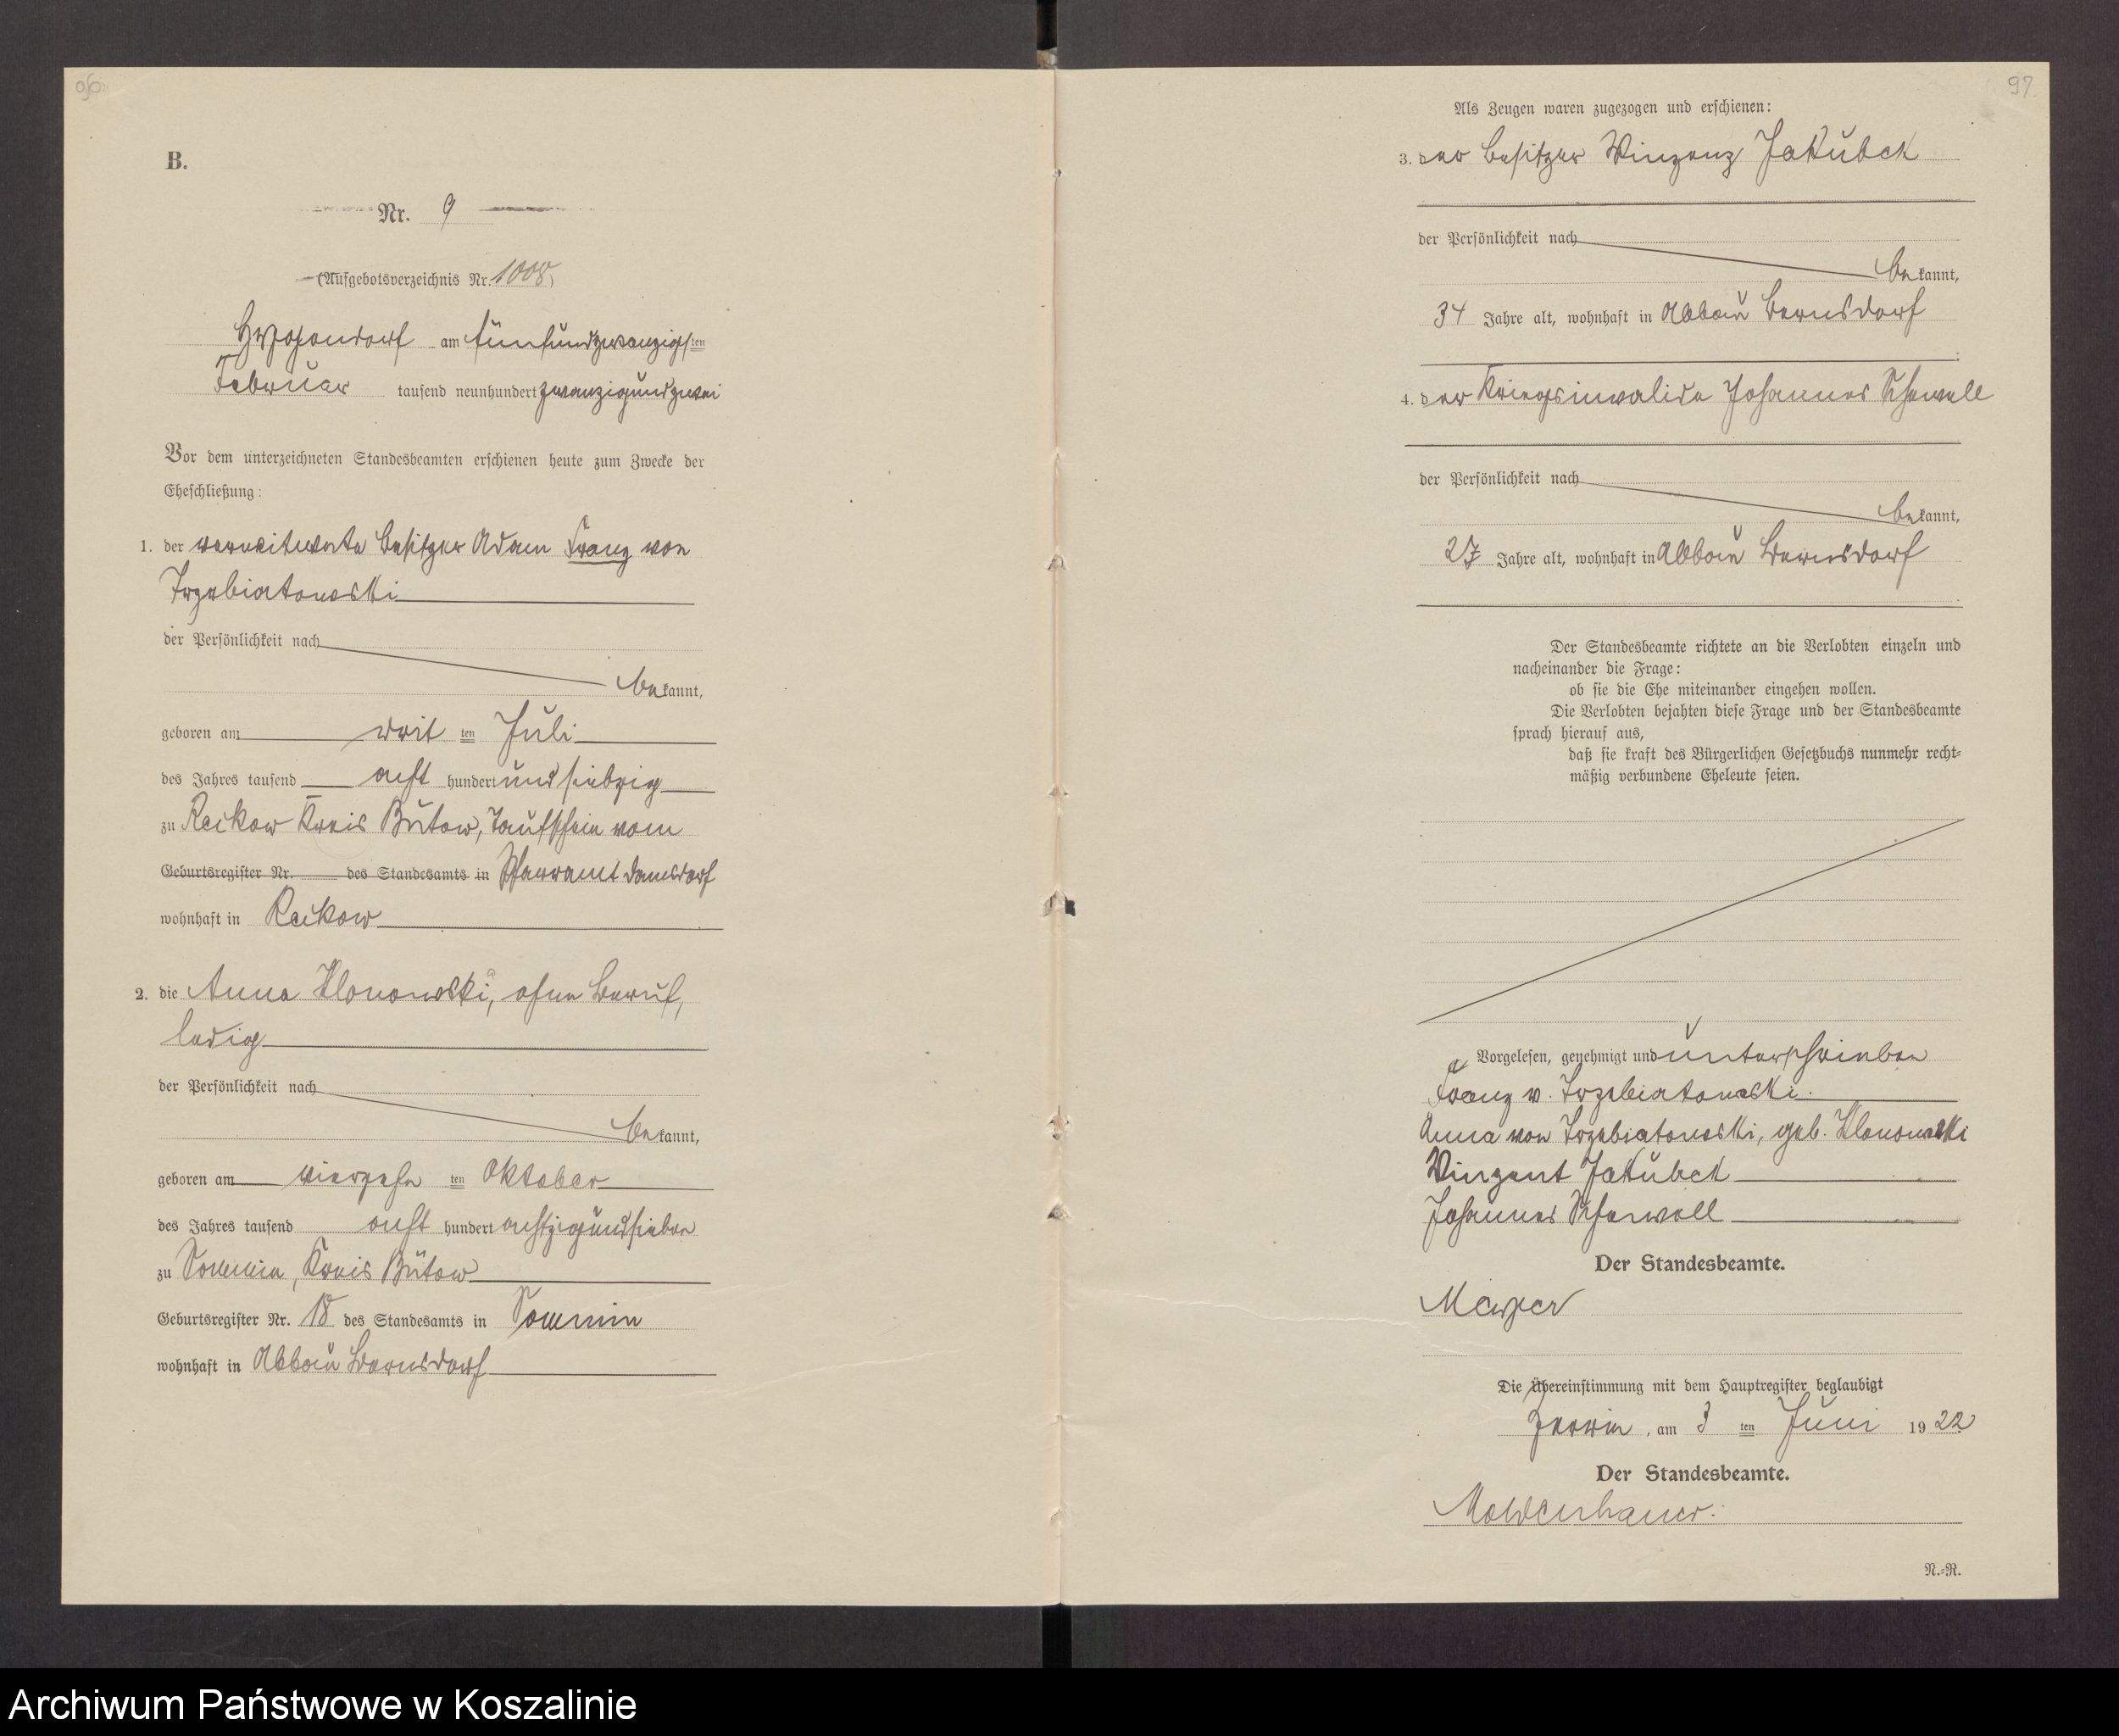 96
B.
Nr. 9
(Aufgebotsverzeichnis Nr. 1008)
am fünfundzwanzigsten
Februar tausend neunhundert zwanzigundzwei
Vor dem unterzeichneten Standesbeamten erschienen heute zum Zwecke der
Eheschließung:
1. der verwitwete Besitzer Adam Franz von
Trzebiatowski
der Persönlichkeit nach
bekannt,
geboren am drit ten Juli
des Jahres tausend acht hundert und siebzig
zu Reckow Kreis Bütow, Taufschein vom
Geburtsregister Nr. des Standesamts in Pfarramt Damsdorf
wohnhaft in Reckow
2. die Anna Klonowski, ohne Beruf,
ledig
der Persönlichkeit nach
bekannt,
geboren am vierzehn ten Oktober
des Jahres tausend acht hundert achtzigundsieben
zu Sommin, Kreis Bütow
Geburtsregister Nr. 18 des Standesamts in Sommin
wohnhaft in Abbau Bernsdorf
97.
Als Zeugen waren zugezogen und erschienen:
3. der Besitzer Vinzenz Jakubek
der Persönlichkeit nach
bekannt,
34 Jahre alt, wohnhaft in Abbau Bernsdorf
4. der Kriegsinvalide Johannes Schewell
der Persönlichkeit nach
bekannt,
27 Jahre alt, wohnhaft in Abbau Bernsdorf
Der Standesbeamte richtete an die Verlobten einzeln und
nacheinander die Frage:
ob sie die Ehe miteinander eingehen wollen.
Die Verlobten bejahten diese Frage und der Standesbeamte
sprach hierauf aus,
daß sie kraft des Bürgerlichen Gesetzbuchs nunmehr recht-
mäßig verbundene Eheleute seien.
Vorgelesen, genehmigt und unterschrieben
Franz v. Trzebiatowski.
Anna von Trzebiatowski, geb. Klonowski
Vinzent Jakubek
Johannes Schewell
Der Standesbeamte.
Die Übereinstimmung mit dem Hauptregister beglaubigt
Zerrin, am 3 ten Juni 1922
Der Standesbeamte.
Moldenhauer.
N.-R.
Archiwum Państwowe w Koszalinie